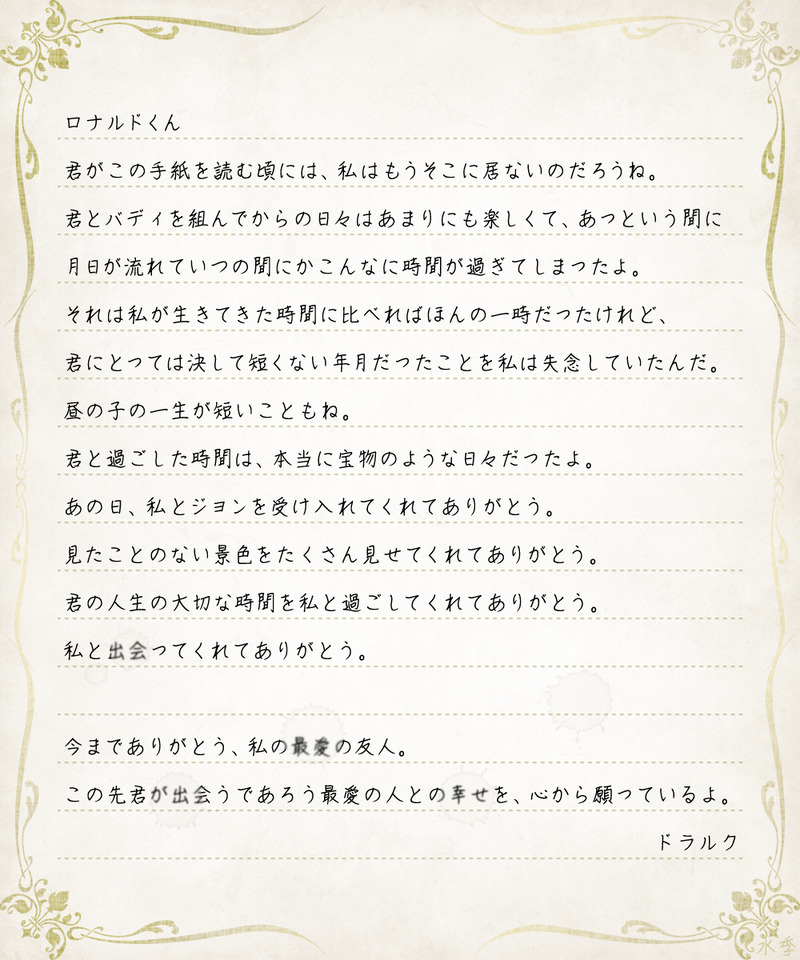 ロナルドくん
君がこの手紙を読む頃には、私はもうそこに居ないのだろうね。
君とバディを組んでからの日々はあまりにも楽しくて、あっという間に
月日が流れていつの間にかこんなに時間が過ぎてしまったよ。
それは私が生きてきた時間に比べればほんの一時だったけれど、
君にとっては決して短くない年月だったことを私は失念していたんだ。
昼の子の一生が短いこともね。
君と過ごした時間は、本当に宝物のような日々だったよ。
あの日、私とジョンを受け入れてくれてありがとう。
見たことのない景色をたくさん見せてくれてありがとう。
君の人生の大切な時間を私と過ごしてくれてありがとう。
私と出会ってくれてありがとう。
今までありがとう、私の最愛の友人。
この先君が出会うであろう最愛の人との幸せを、心から願っているよ。
ドラルク
氷季